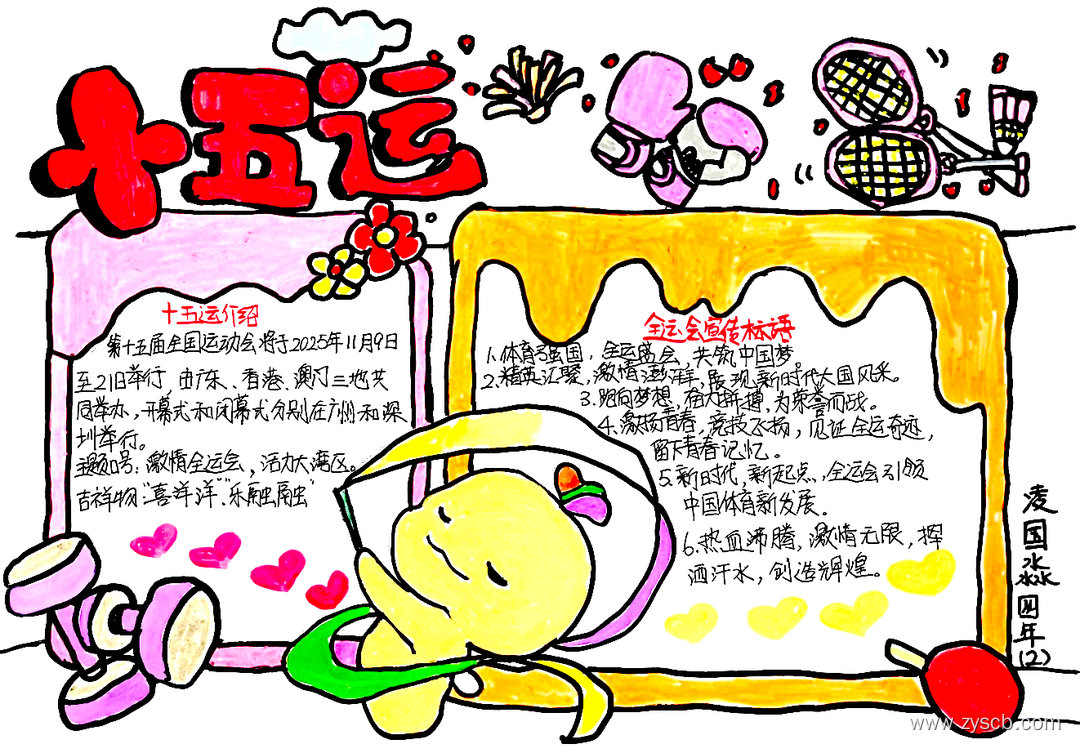 十五运
十五运介绍
第十五届全国运动会将于2025年11月9日
至21日举行,由广东、香港、澳门三地共
同举办,开幕式和闭幕式分别在广州和深
圳举行。
主题口号:激情全运会、活力大湾区。
吉祥物"喜洋洋""乐融融"
全运会宣传标语
1.体育强国,全运盛会,共筑中国梦。
2.精英汇聚,激情澎湃,展现新时代大国风采。
3.跑向梦想,奋力拼搏,为荣誉而战。
4.激扬青春,竞技飞扬,见证全运奇迹,
留下青春记忆。
5.新时代,新起点,全运会引领
中国体育新发展。
6.热血沸腾,激情无限,挥
洒汗水,创造辉煌。
凌国淼 四年(2)
www.zyscb.com